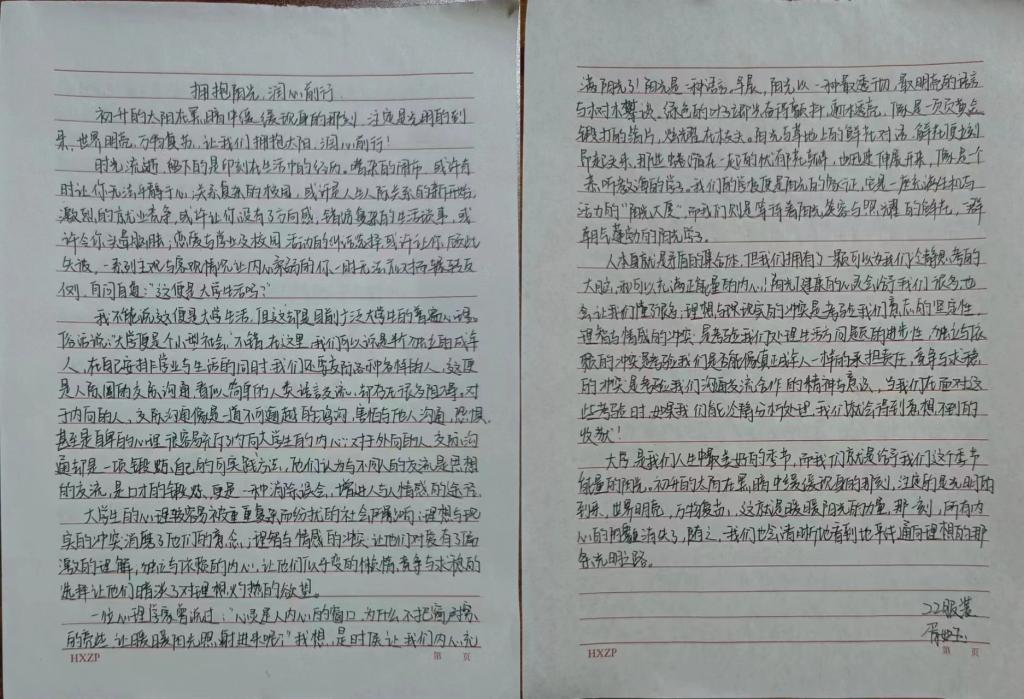 拥抱阳光,润心前行
初升的太阳在黑暗中缓缓现身的那刻,注定是光明的到
来,世界明亮,万物复苏,让我们拥抱太阳,润心前行!
时光流逝,留下的是印刻在生活中的经历。嘈杂的闹市,或许有
时让你无法平静于心;关系复杂的校园,或许是人生人际关系的新开始;
激烈的就业竞争,或许让你没有了方向感,错综复杂的生活故事,或
许令你头晕脑胀;态度与学业及校园活动的似活选择或许让你顾此
失彼,一系列主观与客观情况让内心柔弱的你一时无法应对
例,自问自复:"这便是大学生活吗?"
我不能说这便是大学生活,但这却是目前广泛大学生的普遍心理。
俗话说:"大学便是个小型社会,"不错,在这里,我们可以说是近独立的成年
人,在自己安排学业与生活的同时,我们还要应付各种各样的人,这便
是人际圈的交际沟通,看似简单的人类语言交流,却存在很多阻碍。对
于内向的人,交际沟通像是一道不可逾越的鸿沟,害怕与他人沟通,恐惧
甚至是自卑的心理很容易充斥到内向大学生的内心;对于外向的人,交际沟
通却是一项锻炼自己的可实践方法,他们认为与不同人的交流是思想
的交流,是口才的锻炼,更是一种消除误会,增进人与人情感的途径。
大学生的心理较容易被重重复杂而纷扰的社会所影响;理想与现
实的冲突消磨了他们的意念;理智与情感的冲突,让他们对爱有了偏
激的理解,独立与依赖的内心,让他们似乎变的懒惰,竞争与求稳的
选择让他们暗淡了对理想灼热的欲望。
一位心理学家曾说过:"心灵是人内心的窗口,为什么不把窗户擦
的亮些,让暖暖阳光照射进来呢?"我想,是时候让我们内心充
满阳光了!阳光是一种语言,早晨,阳光以一种最透彻、最明亮的语言
与树木攀谈。绿色的叶子即刻奋得颤抖,通体透亮,像是一页页黄金
锻打的箔片,炫耀在枝头。阳光与草地上的鲜花对话,鲜花便立刻
昂起头来,那些蜷缩在一起的忧郁花瓣,也迅速伸展开来,像是一个
个听教诲的学子。我们的学校便是阳光的见证,它是一座充满生机与
活力的"阳光大厦",而我们则是等待着阳光关爱与照耀的鲜花,
朝气蓬勃的阳光学子。
人本身就是矛盾的集合体,但我们拥有了一颗可以为我们冷静思考的
大脑,和可以充满正能量的内心!阳光健康的心灵会给予我们很多也
会让我们懂的很多;理想与现实的冲突是考验我们意志的坚定性,
理智与情感的冲突,是考验我们处理生活与问题的进步性,独立与依
赖的冲突是考验我们是否能像真正成年人一样的承担责任,竞争与求稳
的冲突是考验我们沟通交流合作的精神与意识,当我们在面对这
些考验时,如果我们能冷静分析处理,我们就会得到意想不到的
收获!
大学是我们人生中最美好的季节,而我们就是给予我们这个季节
能量的阳光。初升的太阳在黑暗中缓缓现身的那刻,注定的是光明的
到来,世界明亮,万物复苏,这就是暖暖阳光的力量,那一刻,所有内
心的阴霾消失了,随之,我们也会清晰地看到地平线通向理想的那
条光明路。
22服装
HXZP 第 页
HXZP 第 页